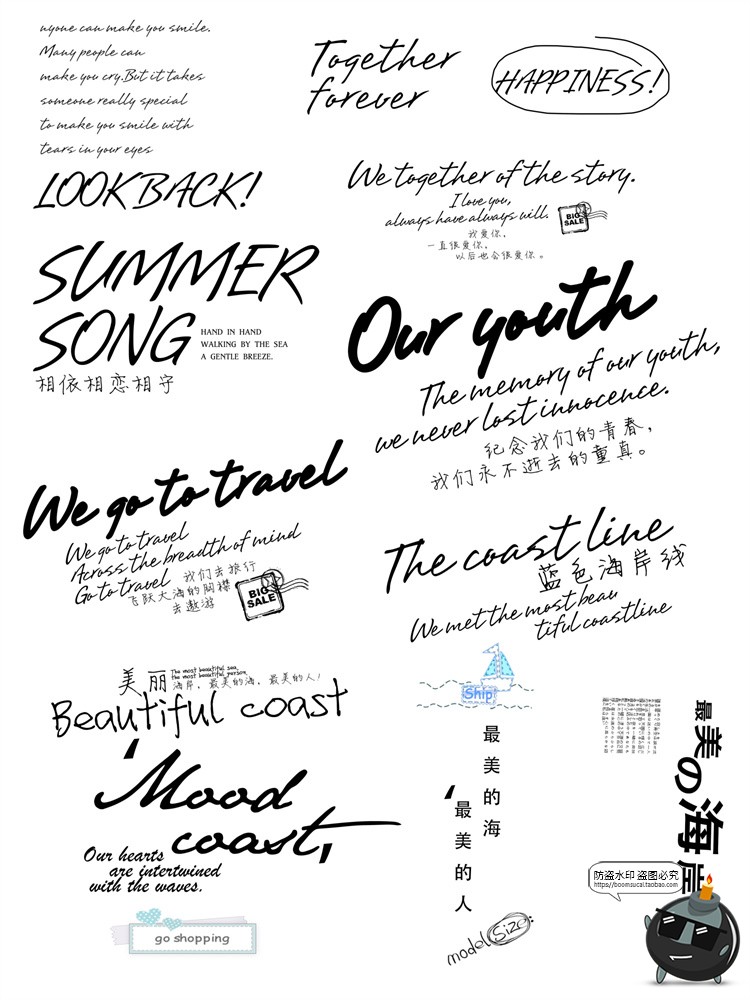 nyone can make you smile.
Many people can
make you cry.But it takes
someone really special
to make you smile with
tears in your eyes
LOOK BACK!
Together
forever
HAPPINESS!
We together of the story.
I love you,
always have always will.
我爱你，
一直很爱你，
以后也会很爱你。
BIG
SALE
SUMMER
SONG
HAND IN HAND
WALKING BY THE SEA
A GENTLE BREEZE.
相依相恋相守
Our youth
The memory of our youth,
we never lost innocence.
纪念我们的青春，
我们永不逝去的童真。
We go to travel
We go to travel
Across the breadth of mind
Go to travel
我们去旅行
飞跃大海的阔襟
去遨游
BIG
SALE
The coast line
蓝色海岸线
We met the most beau
tiful coastline
美丽
The most beautiful sea,
the most beautiful person.
海岸，最美的海，最美的人！
Beautiful coast
Mood
coast,
Our hearts
are intertwined
with the waves.
go shopping
Ship
最美的海
最美的人
model Size:
最美の海岸
防盗水印 盗图必究
https://boomsucai.taobao.com